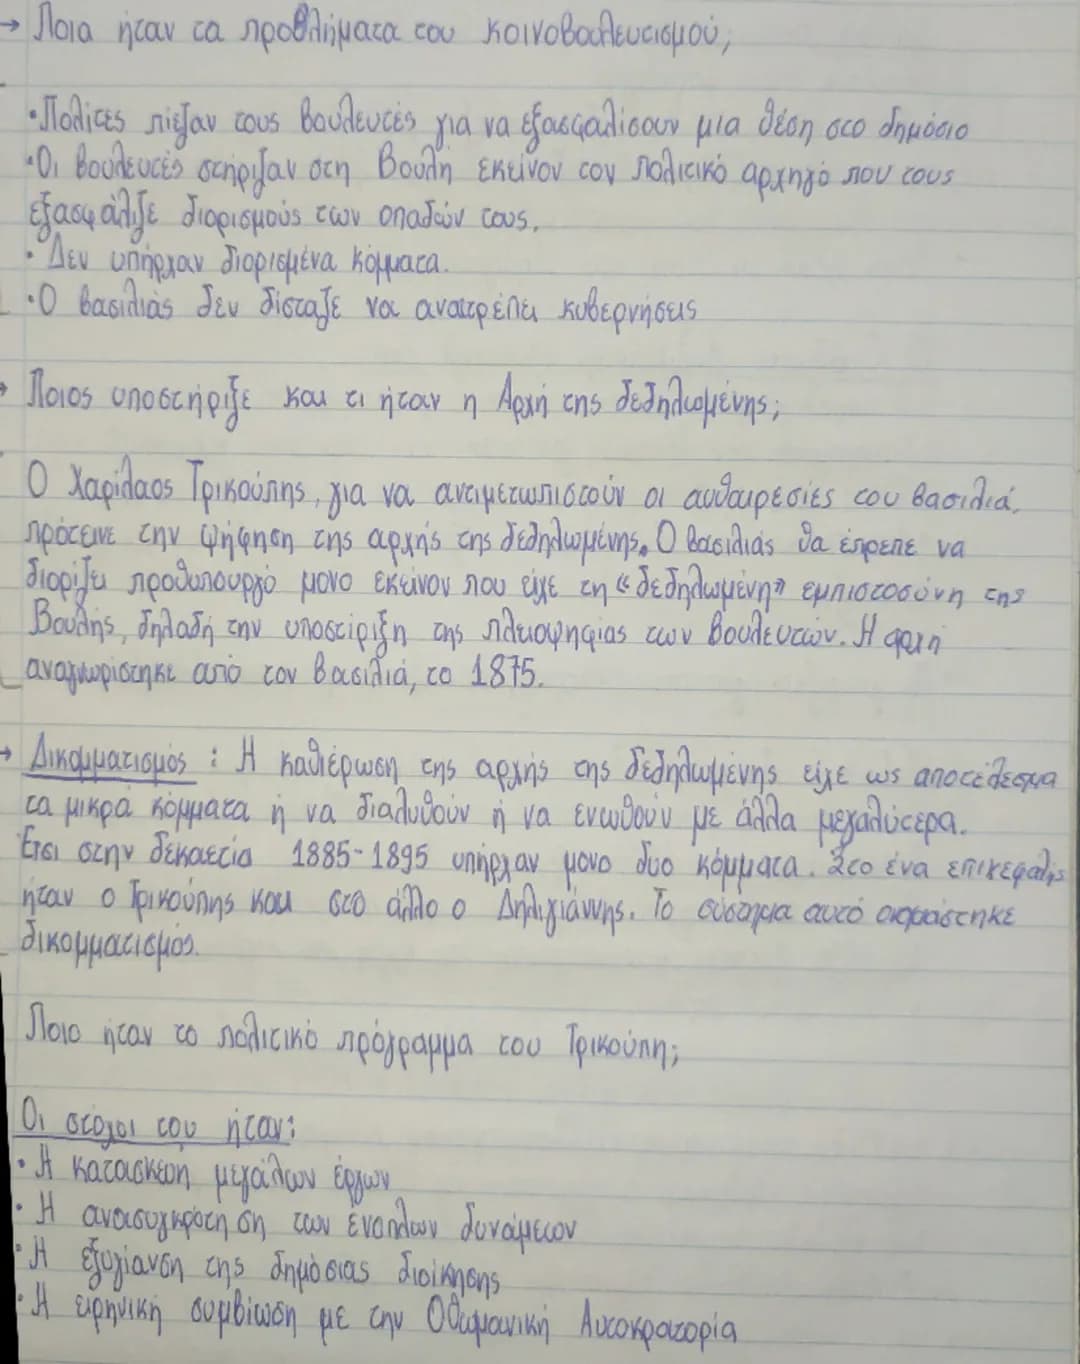 → Ποια ήταν τα προβλήματα του κοινοβουλευτισμού;
• Πολίτες πίεζαν τους βουλευτές για να εξασφαλίσουν μια θέση στο δημόσιο
• Οι βουλευτές στήριζαν στη Βουλή εκείνον τον πολιτικό αρχηγό που τους
εξασφάλιζε διορισμούς των οπαδών τους.
• Δεν υπήρχαν διορισμένα κόμματα.
• Ο βασιλιάς δεν δίσταζε να ανατρέπει κυβερνήσεις
→ Ποιος υποστήριξε και τι ήταν η Αρχή της δεδηλωμένης;
Ο Χαρίλαος Τρικούπης, για να αντιμετωπιστούν οι αυθαιρεσίες του βασιλιά,
πρότεινε την ψήφηση της αρχής της δεδηλωμένης. Ο βασιλιάς θα έπρεπε να
διορίζει προθυπουργό μονο εκείνον που είχε τη «δεδηλωμένη» εμπιστοσύνη της
Βουλής, δηλαδή την υποστίριξη της πλειοψηφίας των βουλευτών. Η αρχή
αναγνωρίστηκε από τον βασιλιά, το 1875.
→ Δικομματισμός : Η καθιέρωση της αρχής της δεδηλωμένης είχε ως αποτέλεσμα
τα μικρά κόμματα ή να διαλυθούν ή να ενωθούν με άλλα μεγαλύτερα.
Έτσι στην δεκαετία 1885-1895 υπήρχαν μονο δυο κόμματα. Στο ένα επικεφαλής
ήταν ο Τρικούπης και στο άλλο ο Δηλιγιάννης. Το σύστημα αυτό ονομάστηκε
δικομματισμός.
Ποιο ήταν το πολιτικό πρόγραμμα του Τρικούπη;
Οι στόχοι του ήταν:
• Η κατασκεση μεγάλων έργων
• Η ανασυγκρότηση των ένοπλων δυνάμεων
• Η εξυγίανση της δημόσιας διοίκησης
• Η ειρηνική συμβίωση με την Οθωμανική Αυτοκρατορία